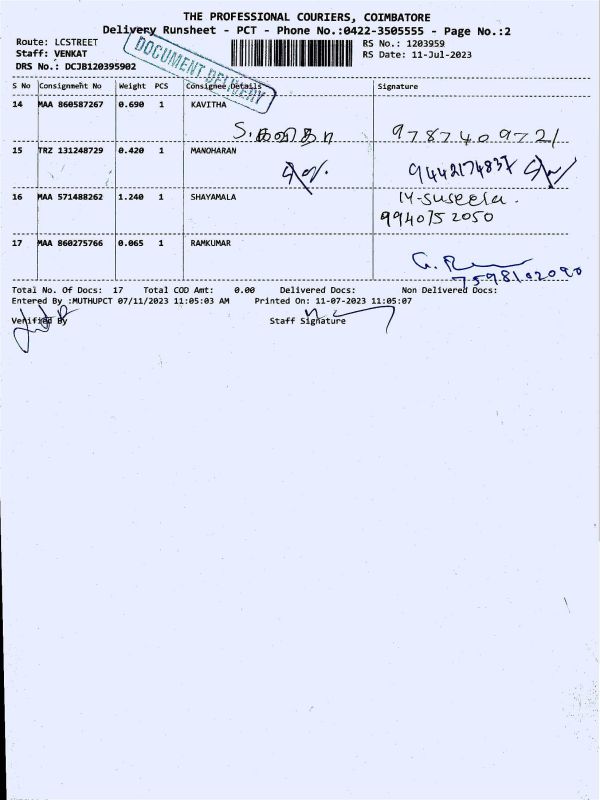 THE PROFESSIONAL COURIERS, COIMBATORE
Delivery Runsheet - PCT - Phone No.:0422-3505555 - Page No.:2
Route: LCSTREET
Staff: VENKAT
DRS No.: DCJB120395902
RS No.: 1203959
RS Date: 11-Jul-2023
DOCUMENT DELIVERY
S No Consignment No Weight PCS Consignee Details Signature
14 MAA 860587267 0.690 1 KAVITHA
S. கவிதா 9787409721
15 TRZ 131248729 0.420 1 MANOHARAN
9442174837
16 MAA 571488262 1.240 1 SHAYAMALA M-suseela.
9940752050
17 MAA 860275766 0.065 1 RAMKUMAR
7598102090
Total No. Of Docs: 17 Total COD Amt: 0.00 Delivered Docs: Non Delivered Docs:
Entered By :MUTHUPCT 07/11/2023 11:05:03 AM Printed On: 11-07-2023 11:05:07
Verified By Staff Signature